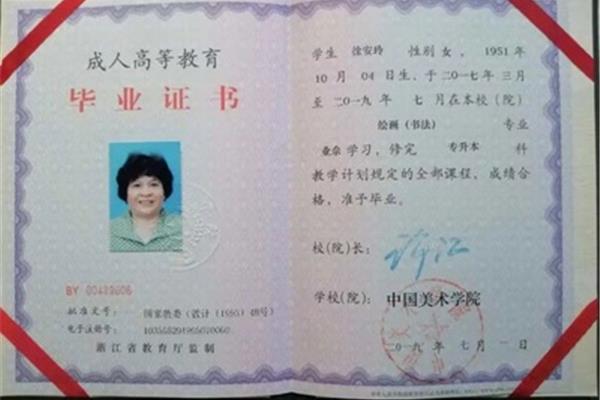 成人高等教育
毕业证书
BY 00489606
批准文号： 国家教委(教计(1995) 48号)
电子注册号：
浙江省教育厅监制
学生 徐安玲 性别 女，1951年
10月 04日生，于二〇一七年 三月
至 二〇一九年 七月在本校(院)
绘画(书法) 专业
业余学习，修完 专升本 科
教学计划规定的全部课程，成绩合
格，准予毕业。
校(院)长：
学校(院)： 中国美术学院
二〇一九年 七月 一日